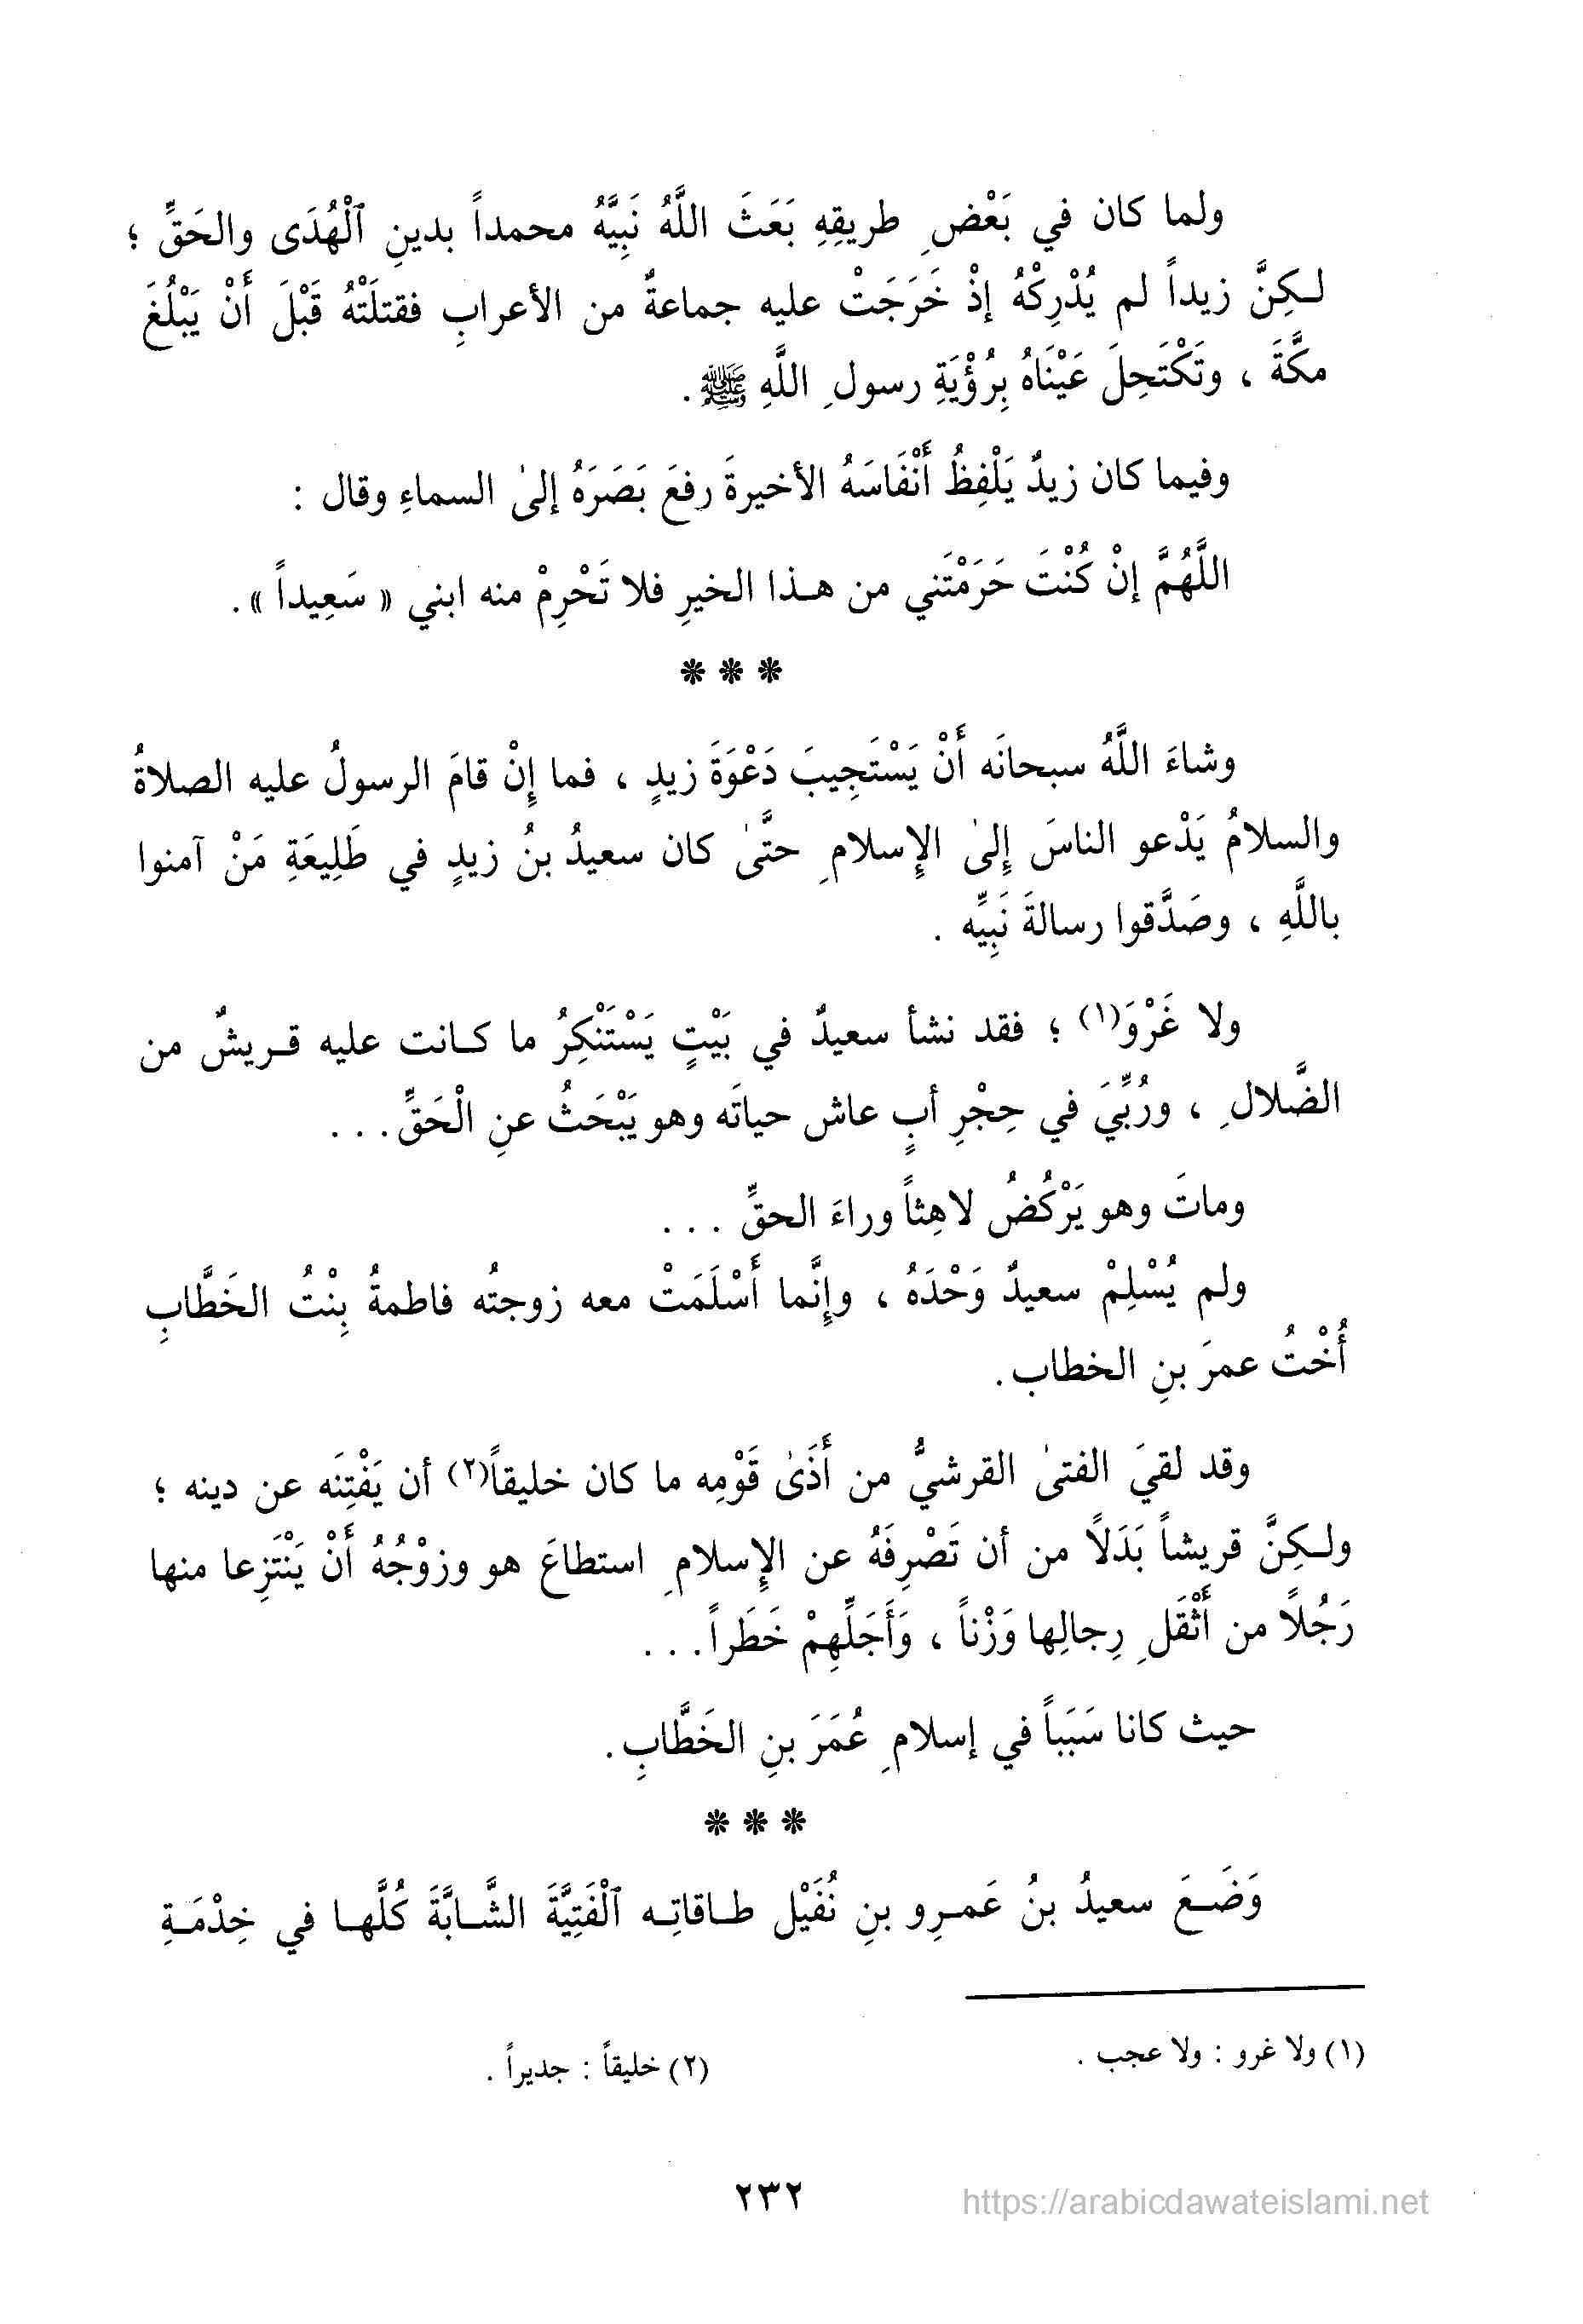 ولما كان في بَعْضِ طريقِهِ بَعَثَ اللَّهُ نَبِيَّهُ محمداً بدينِ ٱلْهُدَى والحَقِّ ؛
لـكِنَّ زيداً لم يُدْرِكْهُ إذْ خَرَجَتْ عليه جماعةٌ من الأعرابِ فقتلَتْهُ قَبْلَ أَنْ يَبْلُغَ
مكَّةَ ، وتَكْتَحِلَ عَيْنَاهُ بِرُؤْيَةِ رسولِ اللَّهِ ﷺ .
وفيما كان زيدٌ يَلْفِظُ أَنْفَاسَهُ الأخيرةَ رفعَ بَصَرَهُ إلىٰ السماءِ وقال :
اللَّهُمَّ إنْ كُنْتَ حَرَمْتَني من هـذا الخيرِ فلا تَحْرِمْ منه ابني « سَعِيداً » .
* * *
وشاءَ اللَّهُ سبحانَه أَنْ يَسْتَجِيبَ دَعْوَةَ زيدٍ ، فما إِنْ قامَ الرسولُ عليه الصلاةُ
والسلامُ يَدْعو الناسَ إِلىٰ الإِسلامِ حتَّىٰ كان سعيدُ بنُ زيدٍ في طَلِيعَةِ مَنْ آمنوا
باللَّهِ ، وصَدَّقوا رسالةَ نَبِيِّه .
ولا غَرْوَ(١) ؛ فقد نشأ سعيدٌ في بَيْتٍ يَسْتَنْكِرُ ما كـانت عليه قـريشٌ من
الضَّلالِ ، ورُبِّيَ في حِجْرِ أبٍ عاش حياتَه وهو يَبْحَثُ عنِ الْحَقِّ . . .
وماتَ وهو يَرْكُضُ لاهِثاً وراءَ الحقِّ . . .
ولم يُسْلِمْ سعيدٌ وَحْدَهُ ، وإِنَّما أَسْلَمَتْ معه زوجتُه فاطمةُ بِنْتُ الخَطَّابِ
أُخْتُ عمرَ بنِ الخطاب .
وقد لقيَ الفتىٰ القرشيُّ من أَذَىٰ قَوْمِه ما كان خليقاً(٢) أن يَفْتِنَه عن دينه ؛
ولـكِنَّ قريشاً بَدَلًا من أن تَصْرِفَهُ عن الإِسلامِ استطاعَ هو وزوْجُهُ أَنْ يَنْتَزِعا منها
رَجُلًا من أَثْقَلِ رِجالِها وَزْناً ، وَأَجَلِّهِمْ خَطَراً . . .
حيث كانا سَبَباً في إسلامِ عُمَرَ بنِ الخَطَّابِ .
* * *
وَضَـعَ سعيدُ بنُ عَمـرِو بنِ نُفَيْل طـاقاتِـه ٱلْفَتِيَّةَ الشَّـابَّةَ كُلَّهـا في خِدْمَـةِ
(١) ولا غرو : ولا عجب .
(٢) خليقاً : جديراً .
٢٣٢
https://arabicdawateislami.net